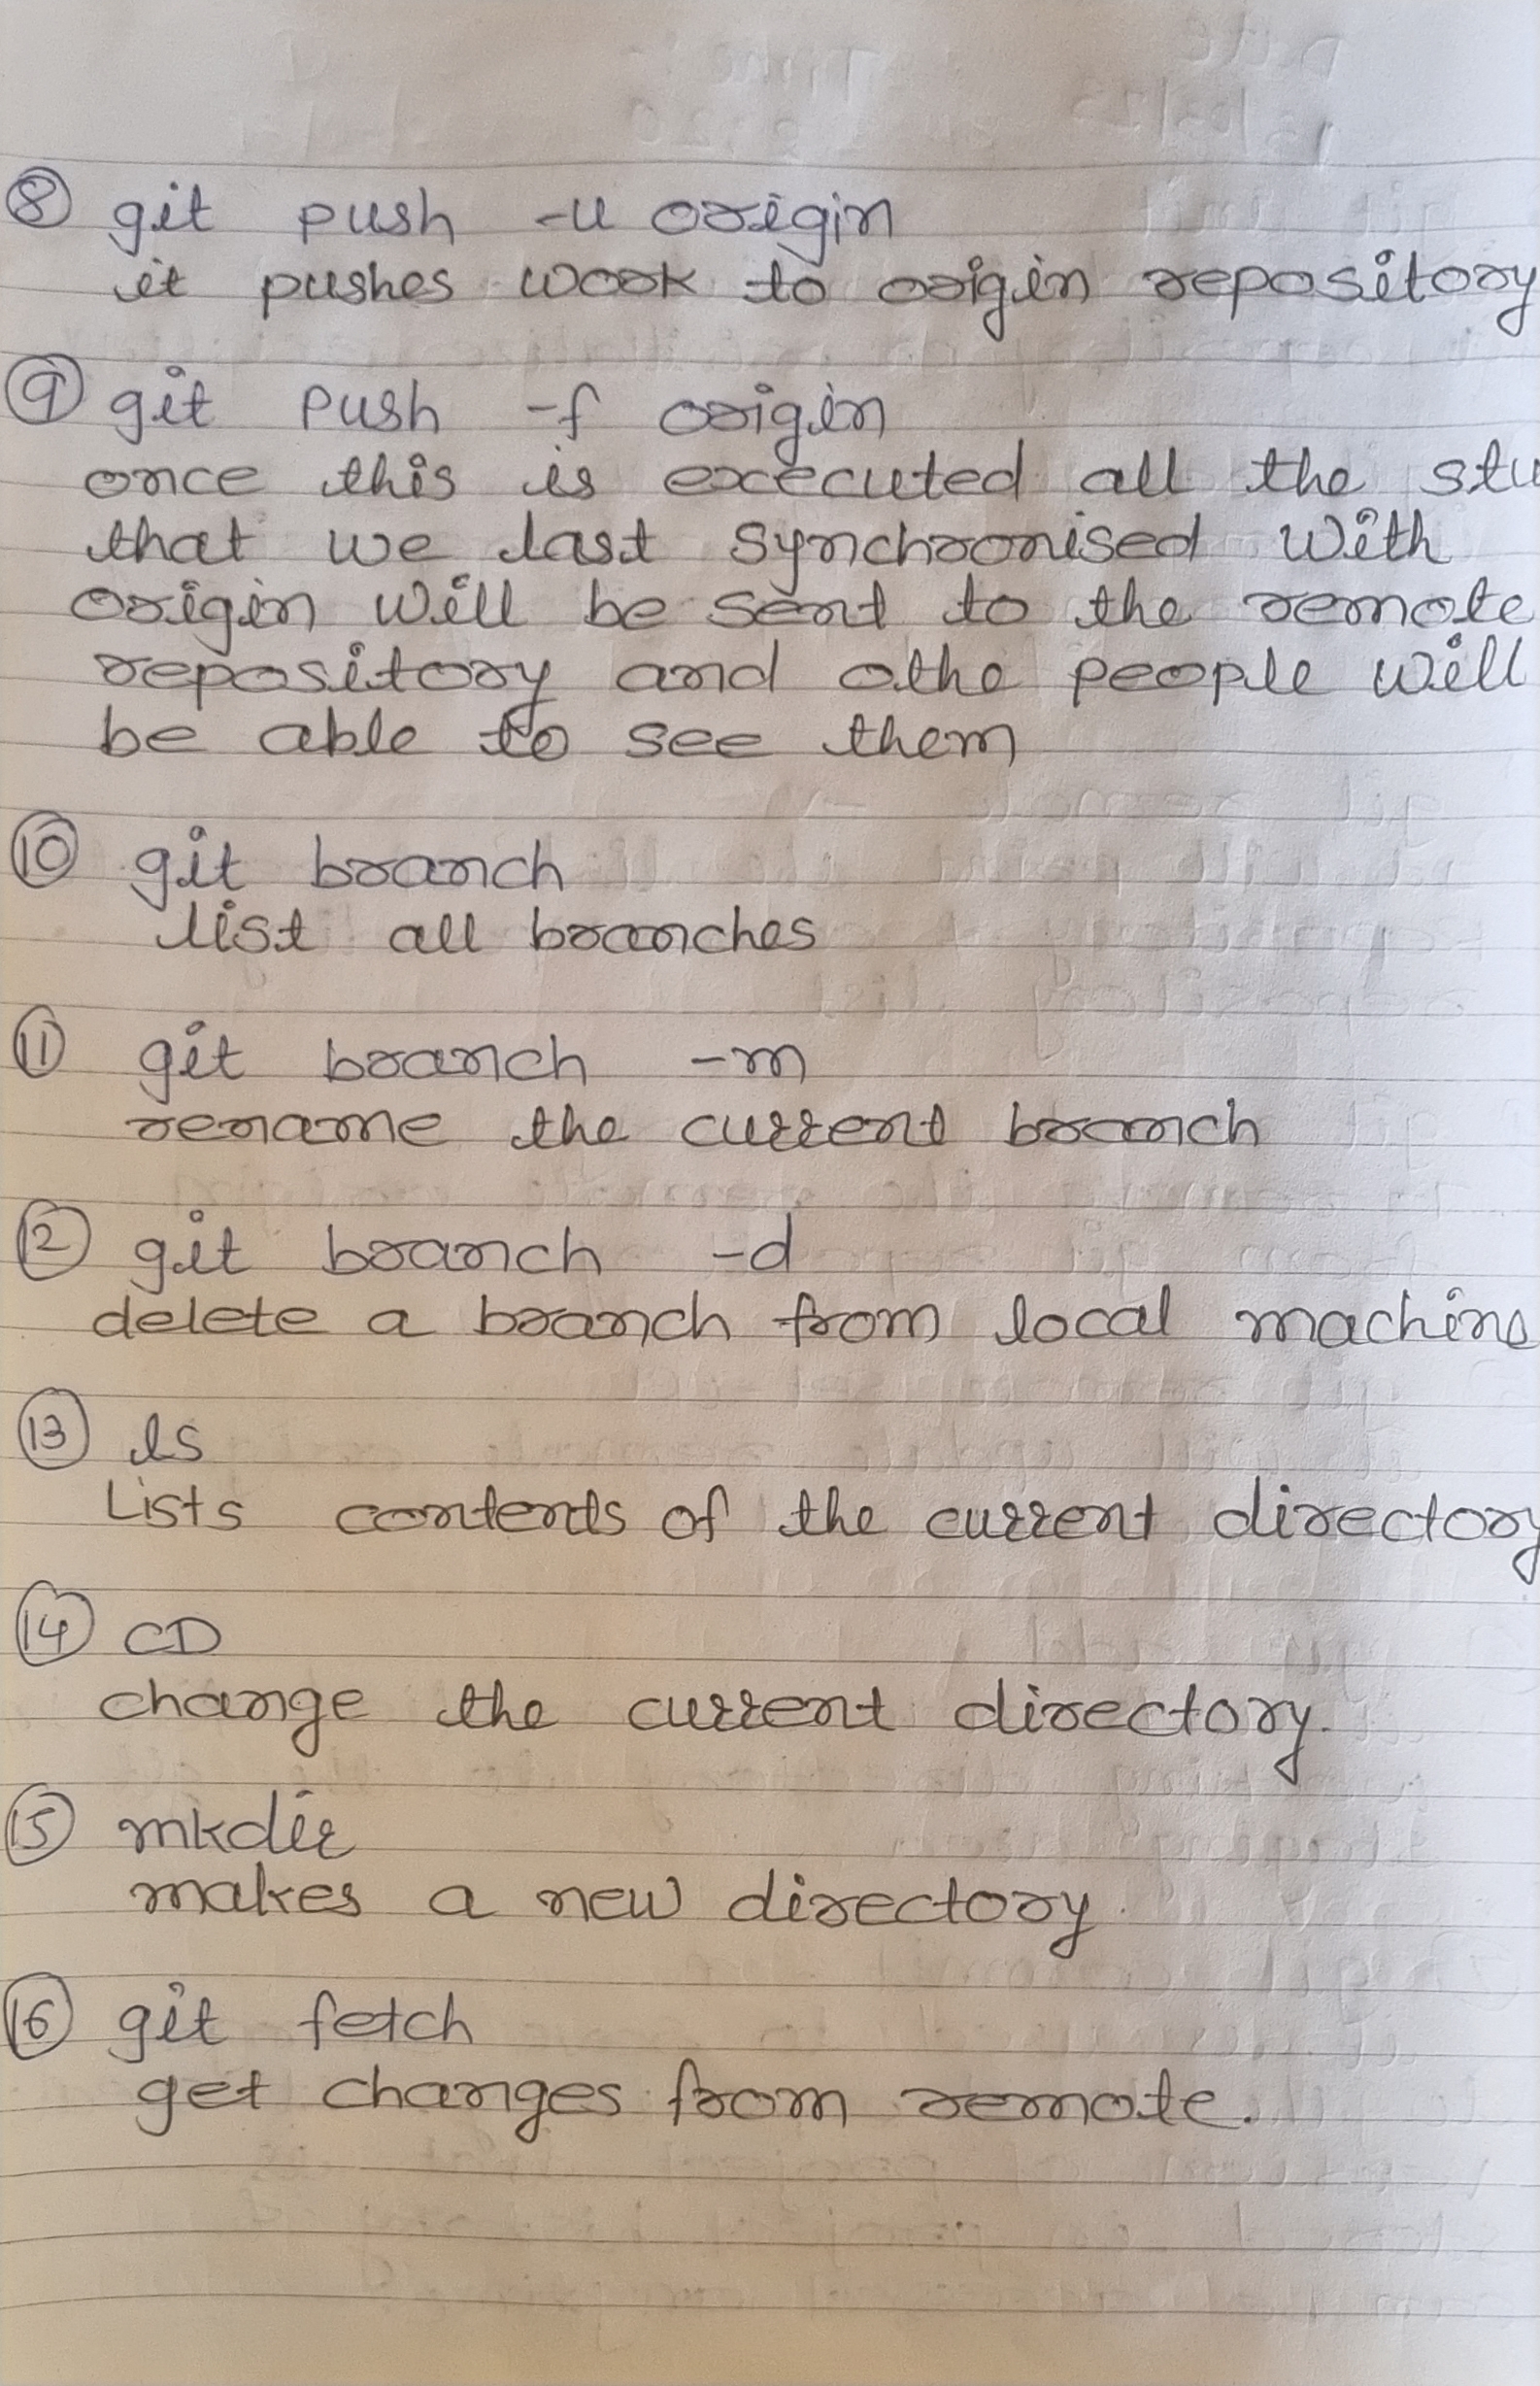 8 git push -u origin
it pushes work to origin repository
9 git push -f origin
once this is executed all the stu
that we last synchronised with
origin will be sent to the remote
repository and othe people will
be able to see them
10 git branch
list all branches
11 git branch -m
rename the current branch
12 git branch -d
delete a branch from local machine
13 ls
Lists contents of the current directory
14 CD
change the current directory.
15 mkdir
makes a new directory.
16 git fetch
get changes from remote.